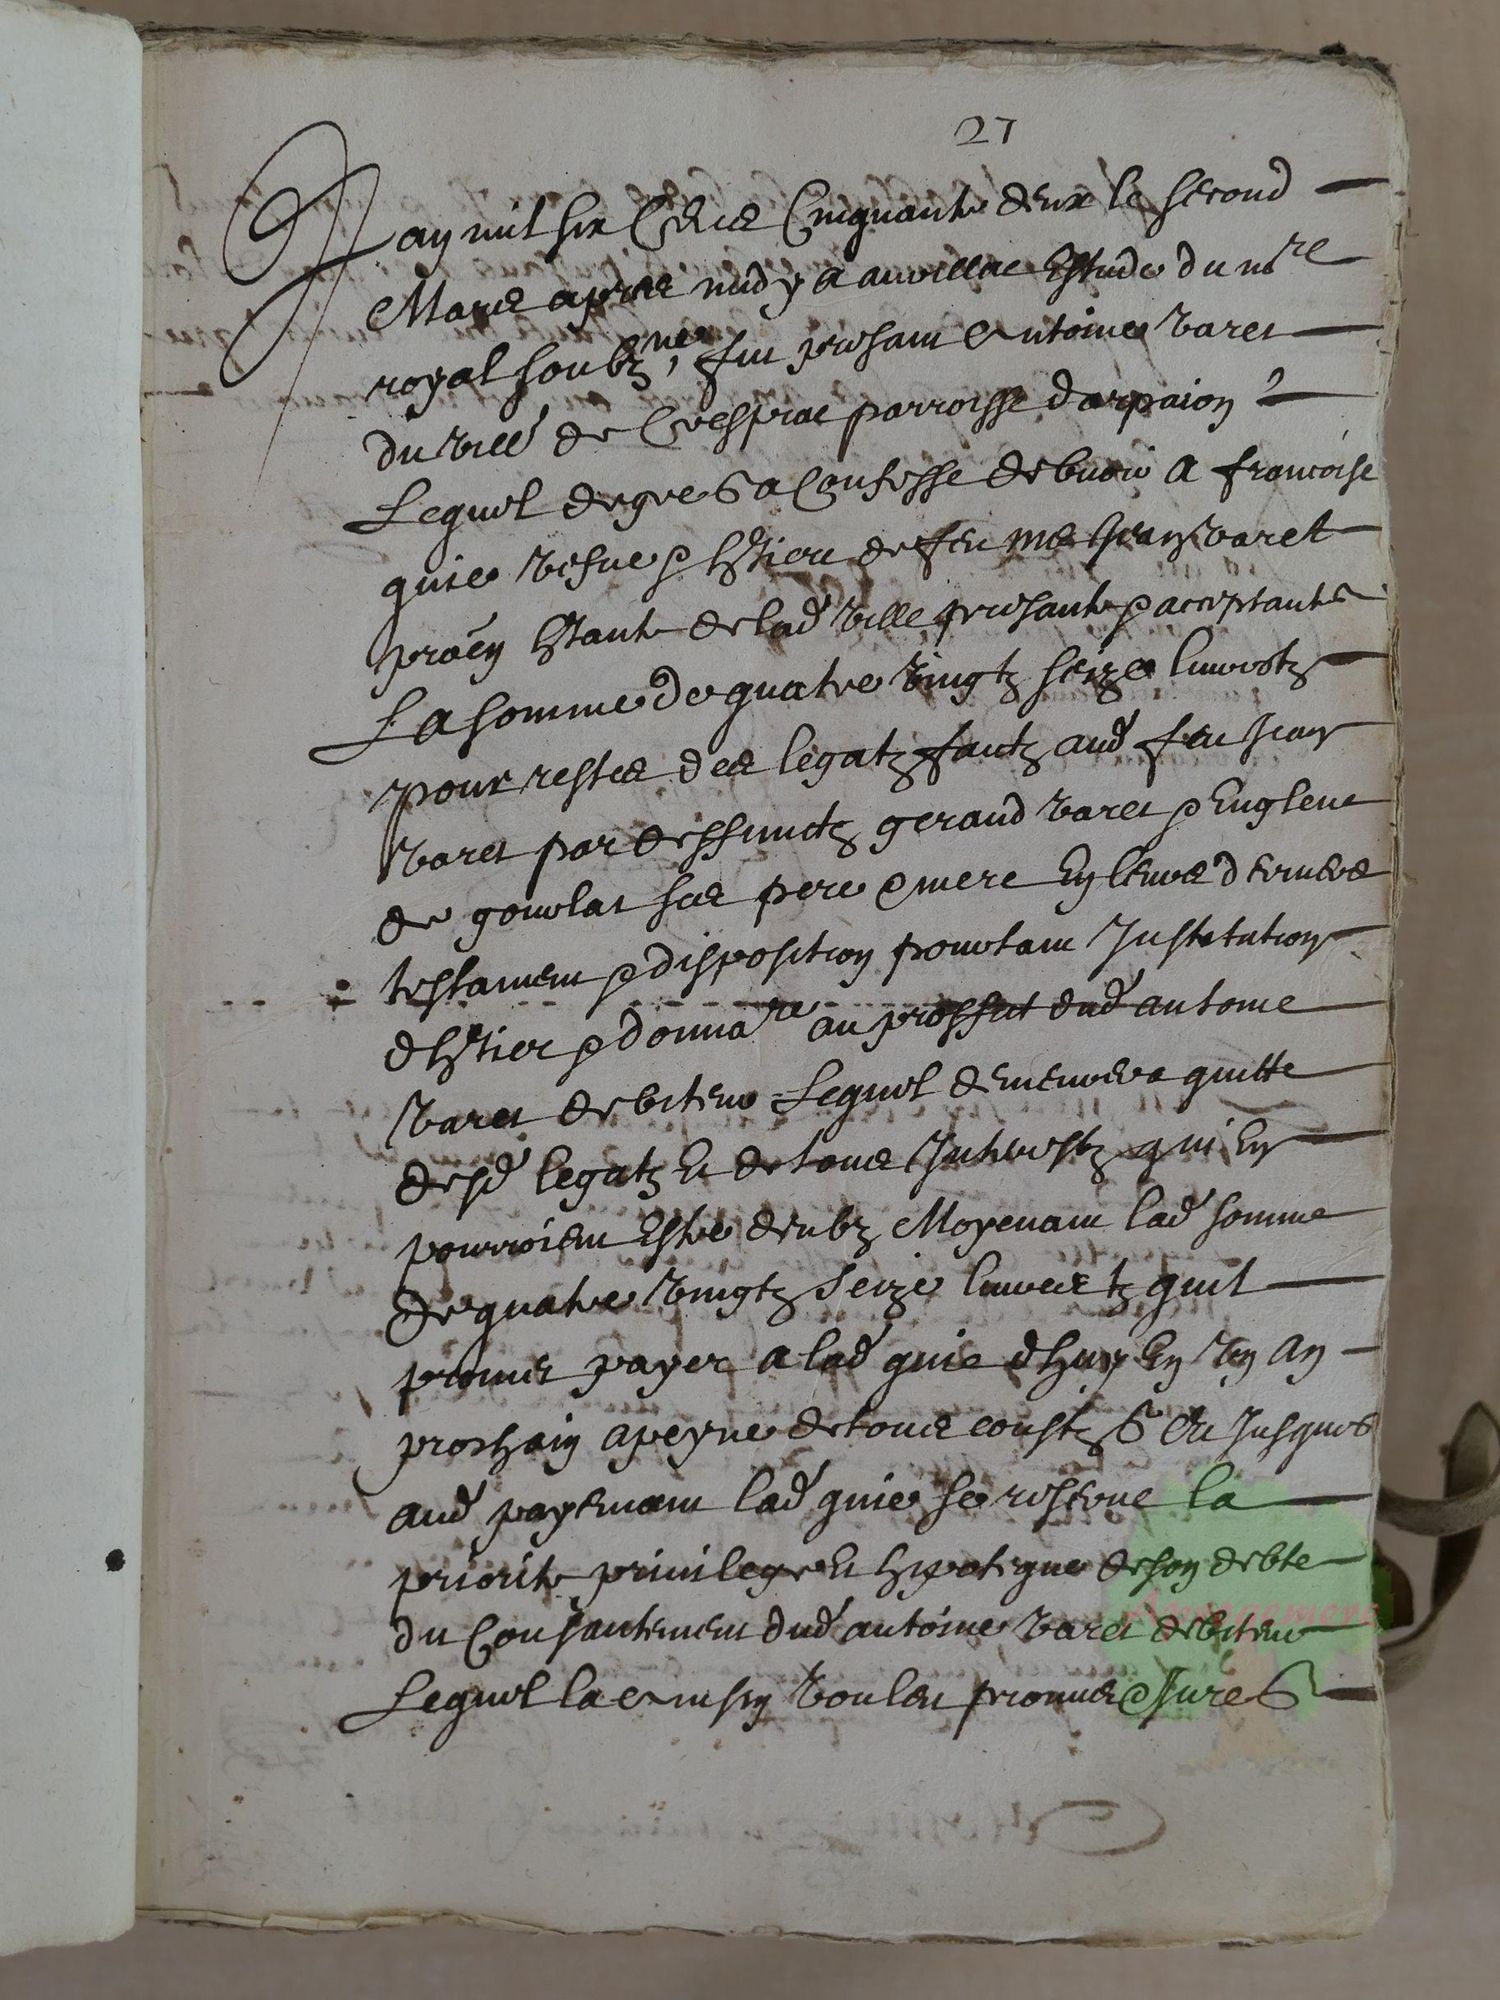 27
L an mil six Cens Cinquante deux le second
Mars apres midy a auvrillac Estude du no.re
royal soubz.ne, fut presant Antoine Varet
du vill.e de Crespiac parroisse darpaion
Lequel de gre &a Confesse debvoir a francoise
guie vefve & h.tiere de feu me Jean Varet
pro.en h.tante de lad ville presante & acceptante
La somme de quatre vingtz seize livres tz
pour restes des legatz faitz aud feu Jean
Varet par deffunctz geraud Varet & Anglene
de goulat ses pere & mere En leurs derniers
testament & disposition portant Institution
dh.tier & donna.re au proffit dud antoine
Varet debiteur Lequel demeurera quitte
desd legatz Et de tous Interestz qui En
pourroient Estre deubz Moyenant lad somme
de quatre vingtz seize livres tz quil
promet payer a lad guie dhuy En Un An
prochain a peyne de tous coustz & Et Jusques
aud payemant lad guie se reserve la
priorite privilege Et hipoteque de son debte
du Consantement dud antoine Varet debiteur
Lequel la ainsin voulen promis & Jure &